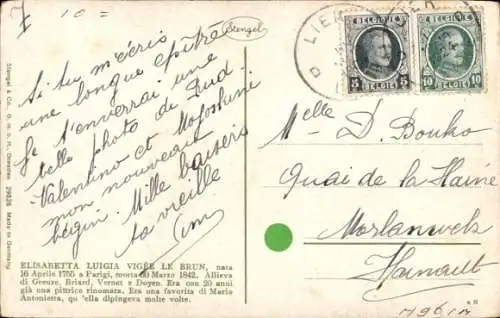 10 =
Stengel
Si tu m'écris
une longue épître
Je t'enverrai une
belle photo de Rud.
Valentino et
mon nouveau
béguin. Mille baisers
ta vieille
ELISABETTA LUIGIA VIGÉE LE BRUN, nata
16 Aprile 1755 a Parigi, morta 30 Marzo 1842. Allieva
di Greuze, Briard, Vernet e Doyen. Era con 20 anni
già una pittrice rinomata. Era una favorita di Maria
Antonietta, qu 'ella dipingeva molte volte.
Stengel & Co., G. m. b. H., Dresden 29836 Made in Germany
LIER
BELGIQUE
5 5
BELGIE
BELGIQUE
10 10
BELGIE
Melle D. Bouko
Quai de la Haine
Morlanwelz
Hainault